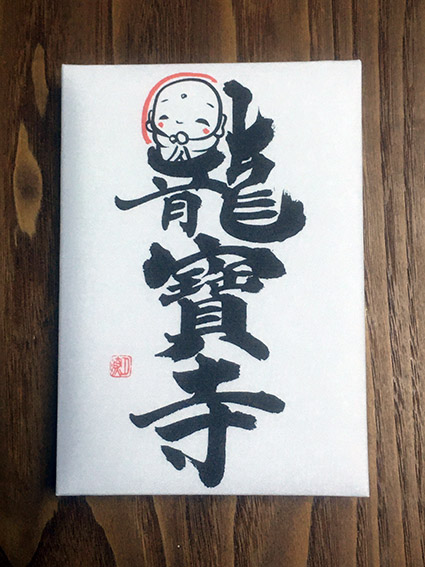 龍寶寺